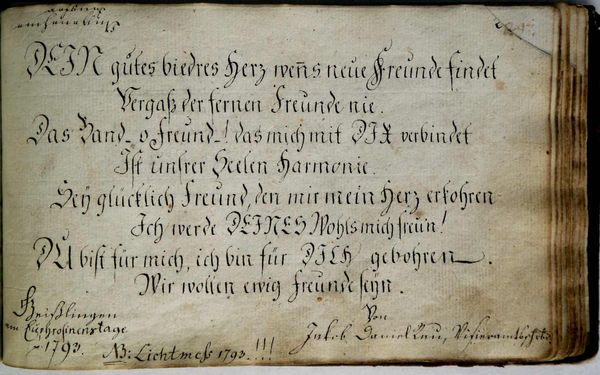 DEJN gutes biedres Herz wen̄s neue Freunde findet
Vergaß der fernen Freunde nie.
Das Band_ o Freund_! das mich mit DIR verbindet
Jst unsrer Seelen Harmonie.
Sey glücklich Freund, den mir mein Herz erkohren
Jch werde DEJNES Wohls mich freun!
DU bist für mich, ich bin für DJCH gebohren_.
Wir wollen ewig Freunde seyn.
Geißlingen
am Euphrosinenstage
1793.
NB: Lichtmeß 1793.!!!
Von
Jakob Daniel